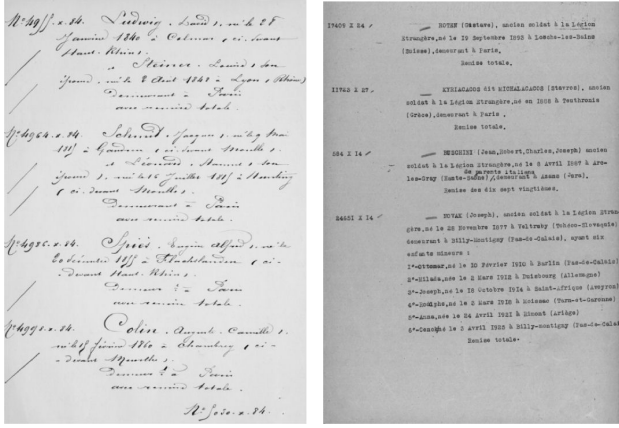 Nº 4955.x.84. Ludwig, David, né le 28
Janvier 1840 à Colmar, ci-devant
Haut-Rhin.
et Steiner, Louise, son
épouse, née le 2 Août 1842 à Lyon, (Rhône)
Demeurant à Paris
avec remise totale.
Nº 4964.x.84. Schmit, Jacques, né le 9 Mai
à ci-devant Moselle.
et Léonard, son
épouse, née le 15 Juillet à
(ci-devant Moselle.
Demeurant à Paris
avec remise totale.
Nº 4985.x.84. Spies, Eugène Alfred, né le
20 Décembre à ci-
devant Haut-Rhin.
Demeurt à Paris
avec remise totale.
Nº 4998.x.84. Colin, Auguste Camille,
né le 15 février 1860 à Chambrey, (ci-
-devant Meurthe.
Demeurt à Paris
avec remise totale.
Nº 5020.x.84.
17409 X 24 — ROTEN (Gustave), ancien soldat à la Légion
Etrangère, né le 19 Septembre 1893 à Loèche-les-Bains
(Suisse), demeurant à Paris.
Remise totale.
11725 X 27. — KYRIACACOS dit MICHALACACOS (Stavros), ancien
soldat à la Légion Etrangère, né en 1888 à Teuthronia
(Grèce), demeurant à Paris.
Remise totale.
594 X 14 — (Jean, Robert, Charles, Joseph) ancien
soldat à la Légion Etrangère, né le 6 Avril 1887 à Arc-
les-Gray (Haute-Saône) de parents italiens, demeurant à (Jura).
Remise des dix sept vingtièmes.
X 14 — NOVAK (Joseph), ancien soldat à la Légion Etran
gère, né le 28 Novembre 1877 à Valtruby (Tchéco-Slovaquie)
demeurant à Billy-Montigny (Pas-de-Calais), ayant six
enfants mineurs :
1°-Ottomar, né le 13 Février 1910 à Barlin (Pas-de-Calais)
2°-Milada, née le 2 Mars 1912 à Duisbourg (Allemagne)
3°-Joseph, né le 18 Octobre 1914 à Saint-Affrique (Aveyron)
4°-Rodolphe, né le 3 Mars 1918 à Moissac (Tarn-et-Garonne)
5°-Anna, née le 24 Avril 1921 à Rimont (Ariège)
6°- né le 3 Avril 1923 à Billy-montigny (Pas-de-Calai
Remise totale.